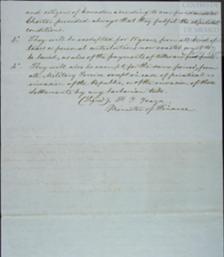 and citizens of Ecuador according to any
Charter, provided always that they fulfil the stipulated
conditions.
They will be exempted for years, from all kinds of
taxes or personal contributions now created or yet to
be levied, as also of the payments of tithes and first fruits.
They will also be exempt for the same period, from
all Military Service, except in case of
invasion of the Republic, or the invasion of those
Settlements by any barbarian tribe.
(Signed) F. P. Icaza
Minister of Finance.